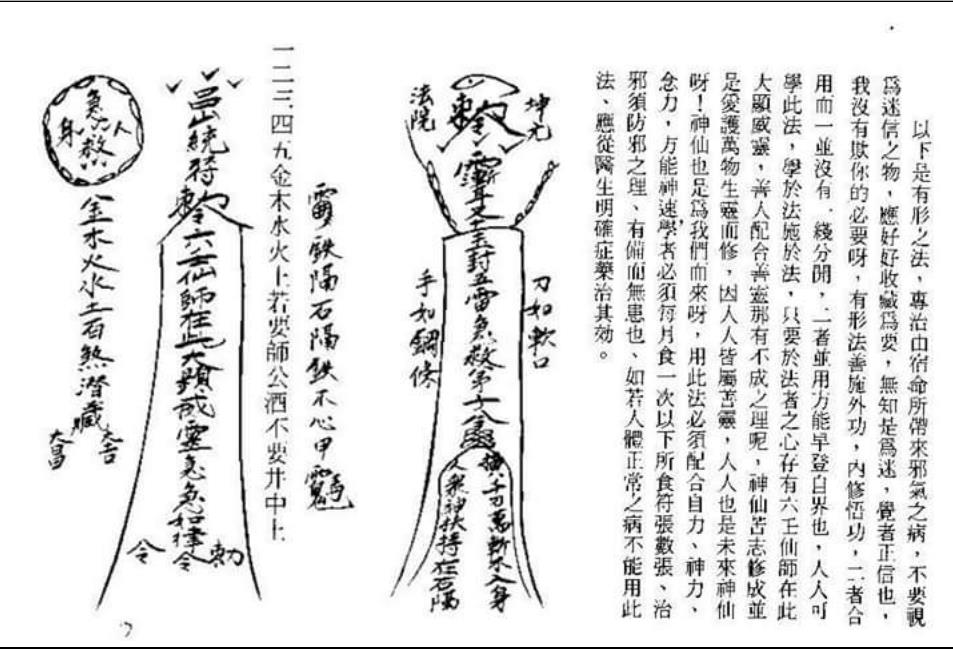 以下是有形之法，專治由宿命所帶來邪氣之病，不要視
爲迷信之物，應好好收藏爲要，無知是爲迷，覺者正信也，
我沒有欺你的必要呀，有形法善施外功，內修悟功，二者合
用而一並沒有一綫分開，二者並用方能早登自界也，人人可
學此法，學於法施於法，只要於法者之心存有六壬仙師在此
大顯威靈，善人配合善靈那有不成之理呢，神仙苦志修成並
是愛護萬物生靈而修，因人人皆屬善靈，人人也是未來神仙
呀！神仙也是爲我們而來呀，用此法必須配合自力、神力、
念力，方能神速，學者必須每月食一次以下所食符張數張、治
邪須防邪之理、有備而無患也、如若人體正常之病不能用此
法、應從醫生明確症藥治其效。
坤元
刀如軟口
法院
手如鋼條
封五雷急救
橫千刀萬斬不入身
人衆神扶持在石隔
鉄隔石隔鉄不心甲
一二三四五金木水火土若要師公酒不要井中上
統符
六壬仙師在此大顯威靈急急如律令
勅
令
急救
人
身
金水火水土百煞潛藏
大吉
大昌